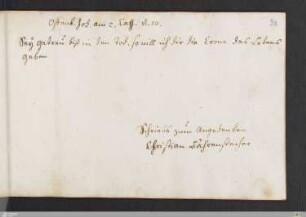 Offenb. Joh. am 2. Cap. V. 10.
Sey getreu biß in den Tod, so will ich dir die Crone des Lebens
geben
Schriebs zum Angedencken
Christian